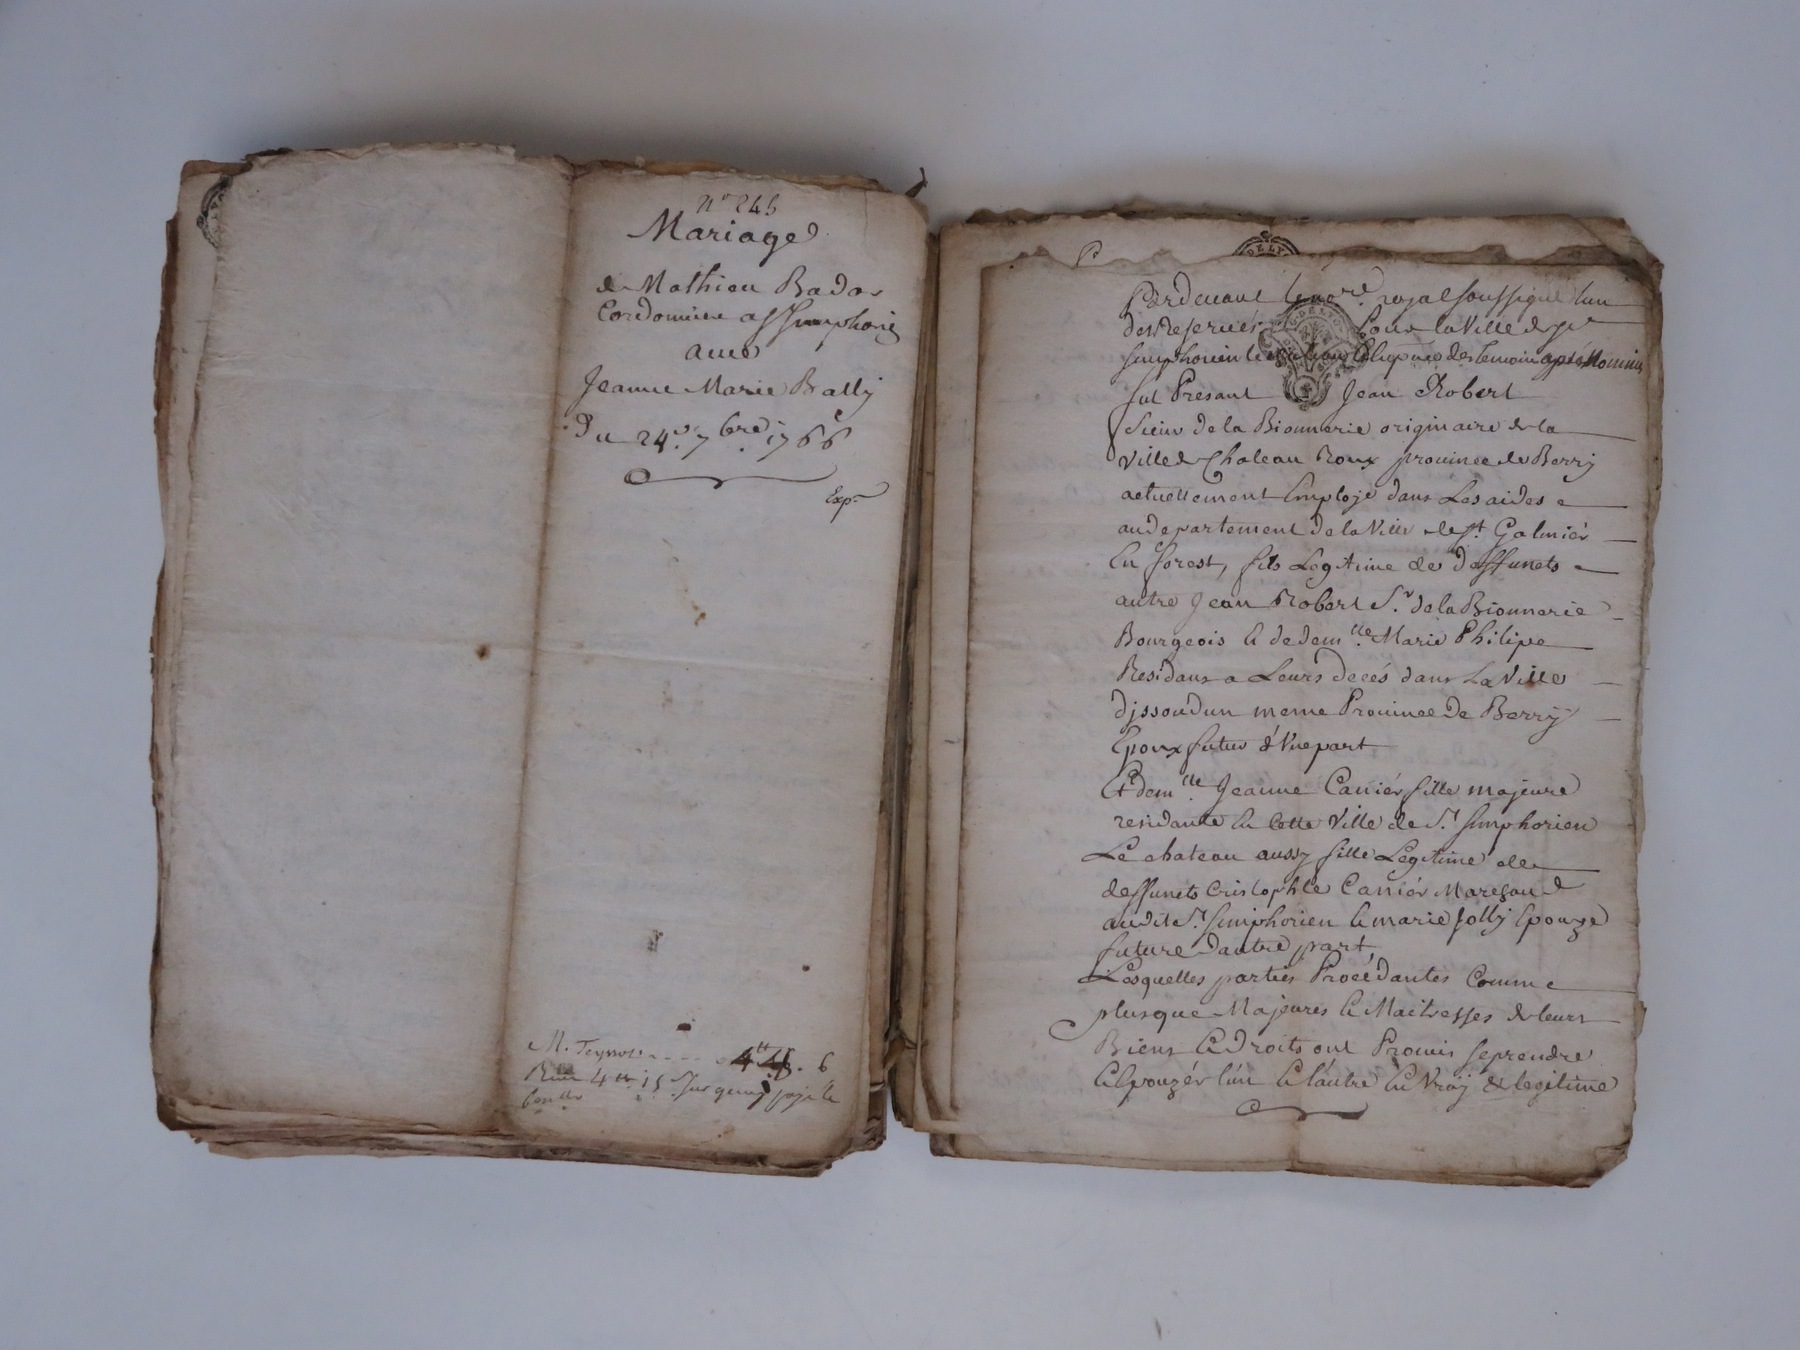 n° 245
Mariage
de Mathieu Badar
Cordonnier a St Simphorien
avec
Jeanne Marie Bally
Du 24e. 7bre. 1766
Exp.
M. Teynot
4tt
6
Par devant le nore. royal soussigné l'un
des Reservés Pour la Ville de St
Simphorien le chateau des temoins aprés Nommes
fut Présant Jean Robert
Sieur de la Bionnerie originaire de la
Ville de Chateau Roux province de Berry
actuellement Employé dans Les aides
au departement de la Ville de St. Galmiér
En forest, fils Legitime de deffunets
autre Jean Robert Sr. de la Bionnerie
Bourgeois & de demlle. Marie Philipe
Residans a Leurs decés dans La Ville
d'jssoudun meme Province De Berry
Epoux futur d'Vne part
Et demlle. Jeanne Carriér fille majeure
residante En Cette Ville de St. Simphorien
Le chateau aussy fille Legitime de
deffunets Cristophle Carriér Marechand
audit St. Simphorien & marie Jolly Epouze
future d'autre part
Lesquelles parties Procédantes Comme
plusque Majeures & Maitresses de leurs
Biens & Droits ont Promis se prendre
& Epouzér l'un & l'autre En Vray & legitime